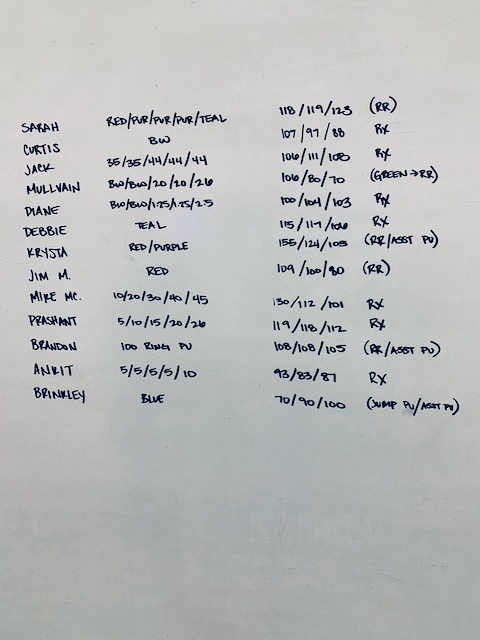 SARAH RED/PUR/PUR/PUR/TEAL 118/119/123 (RR)
CURTIS BW 107/97/88 RX
JACK 35/35/44/44/44 106/111/108 RX
MULLVAIN BW/BW/20/20/26 106/80/70 (GREEN→RR)
DIANE BW/BW/1.75/1.75/2.5 100/104/103 RX
DEBBIE TEAL 115/117/106 RX
KRYSTA RED/PURPLE 155/124/105 (RR/ASST PU)
JIM M. RED 109/100/90 (RR)
MIKE MC. 10/20/30/40/45 130/112/101 RX
PRASHANT 5/10/15/20/26 119/118/112 RX
BRANDON 100 RING PU 108/108/105 (RR/ASST PU)
ANKIT 5/5/5/5/10 93/83/87 RX
BRINKLEY BLUE 70/90/100 (JUMP PU/ASST PU)